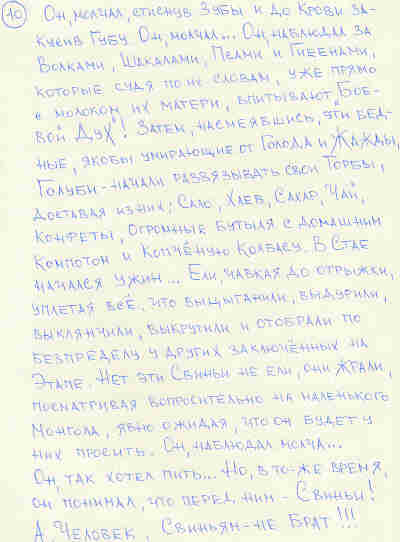 10
Он, молчал, стиснув Зубы и до Крови за-
кусив Губу. Он, молчал... Он, наблюдал за
Волками, Шакалами, Псами и Гиеенами,
которые судя по их словам, уже прямо
с молоком их матери, впитывают „Бое-
вой Дух"! Затем, насмеявшись, эти бед-
ные, якобы умирающие от Голода и Жажды,
Голуби - начали развязывать свои Торбы,
доставая из них; Сало, Хлеб, Сахар, Чай,
конфеты, огромные бутыля с домашним
компотом и копчёную колбасу. В Стае
начался ужин... Ели, чавкая до отрыжки,
уплетая всё, что выцыганили, выдурили,
выклянчили, выкрутили и отобрали по
безпределу у других заключённых на
Этапе. Нет эти Свиньи не ели, они Жрали,
посматривая вопросительно на маленького
Монгола, явно ожидая, что он будет у
них просить. Он, наблюдал молча...
Он, так хотел пить... Но, в то-же время,
он понимал, что перед ним - Свиньи!
А, Человек, Свиньям - не Брат!!!